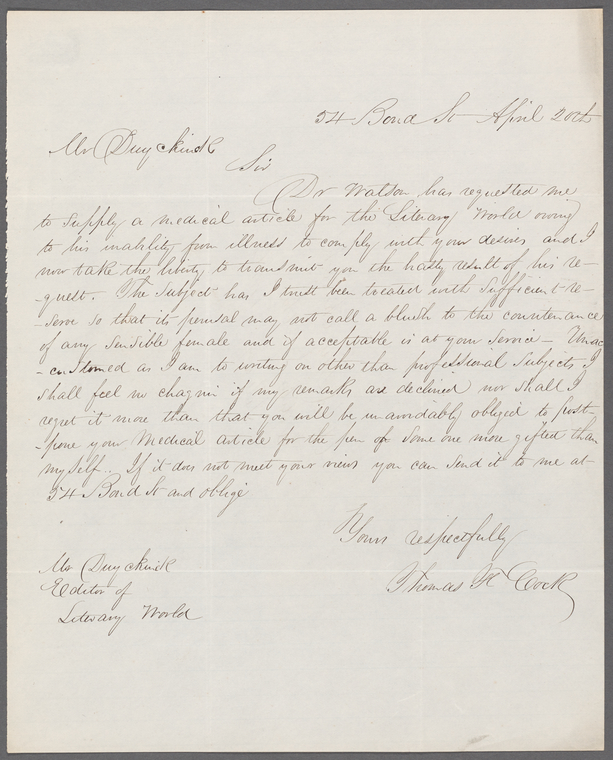 54 Bond St April 20th
Mr Duyckinck
Sir
Dr Watson has requested me
to supply a medical article for the Literary World owing
to his inability from illness to comply with your desires and I
now take the liberty to transmit you the hasty result of his re-
-quest. The subject has I trust been treated with sufficient re-
-serve so that its perusal may not call a blush to the countenance
of any sensible female and if acceptable is at your service - Unac
-customed as I am to writing on other than professional subjects I
shall feel no chagrin if my remarks are declined nor shall I
regret it more than that you will be unavoidably obliged to post-
-pone your Medical Article for the pen of some one more gifted than
myself.. If it does not meet your views you can send it to me at
54 Bond St and oblige
Yours respectfully
Thomas F Cock
Mr Duyckinck
Editor of
Literary World